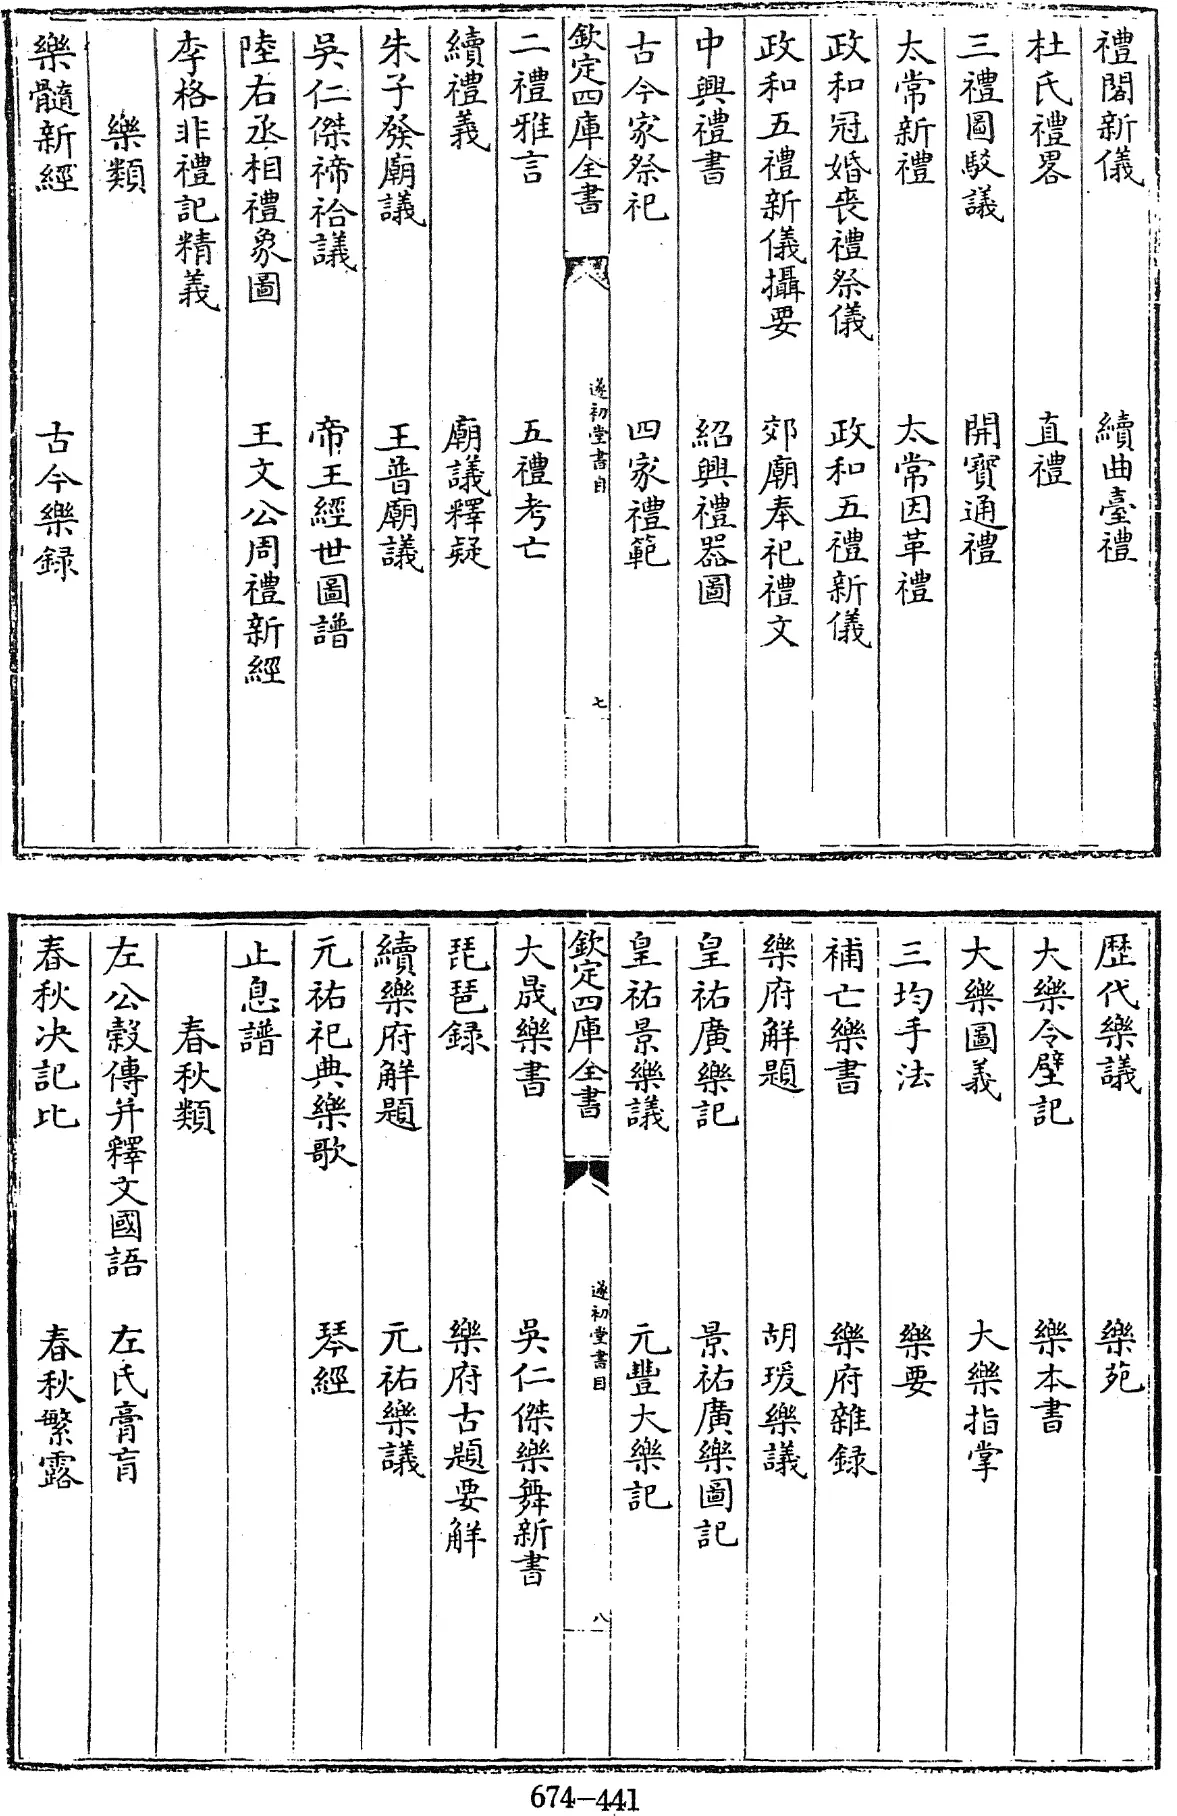 禮閣新儀　續曲臺禮
杜氏禮畧　直禮
三禮圖駮議　開寳通禮
太常新禮　太常因革禮
政和冠婚喪禮祭儀　政和五禮新儀
政和五禮新儀攝要　郊廟奉祀禮文
中興禮書　紹興禮器圖
古今家祭祀　四家禮範
欽定四庫全書　遂初堂書目　七
二禮雅言　五禮考亡
續禮義　廟議釋疑
朱子發廟議　王普廟議
吳仁傑禘祫議　帝王經世圖譜
陸右丞相禮象圖　王文公周禮新經
李格非禮記精義
樂類
樂髓新經　古今樂録
歷代樂議　樂苑
大樂令壁記　樂本書
大樂圖義　大樂指掌
三均手法　樂要
補亡樂書　樂府雜録
樂府解題　胡瑗樂議
皇祐廣樂記　景祐廣樂圖記
皇祐景樂議　元豐大樂記
欽定四庫全書　遂初堂書目　八
大晟樂書　吳仁傑樂舞新書
琵琶録　樂府古題要解
續樂府解題　元祐樂議
元祐祀典樂歌　琴經
止息譜
春秋類
左公穀傳并釋文國語　左氏膏肓
春秋決記比　春秋繁露
674-441